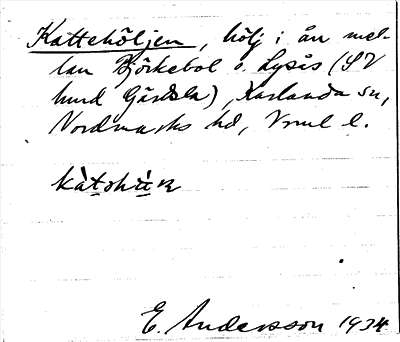 Kattehöljen, hölj i ån mel-
lan Björkebol o. Lysås (SV
hmd Gärdsla), Karlanda sn,
Nordmarks hd, Vrml l.
E. Andersson 1934